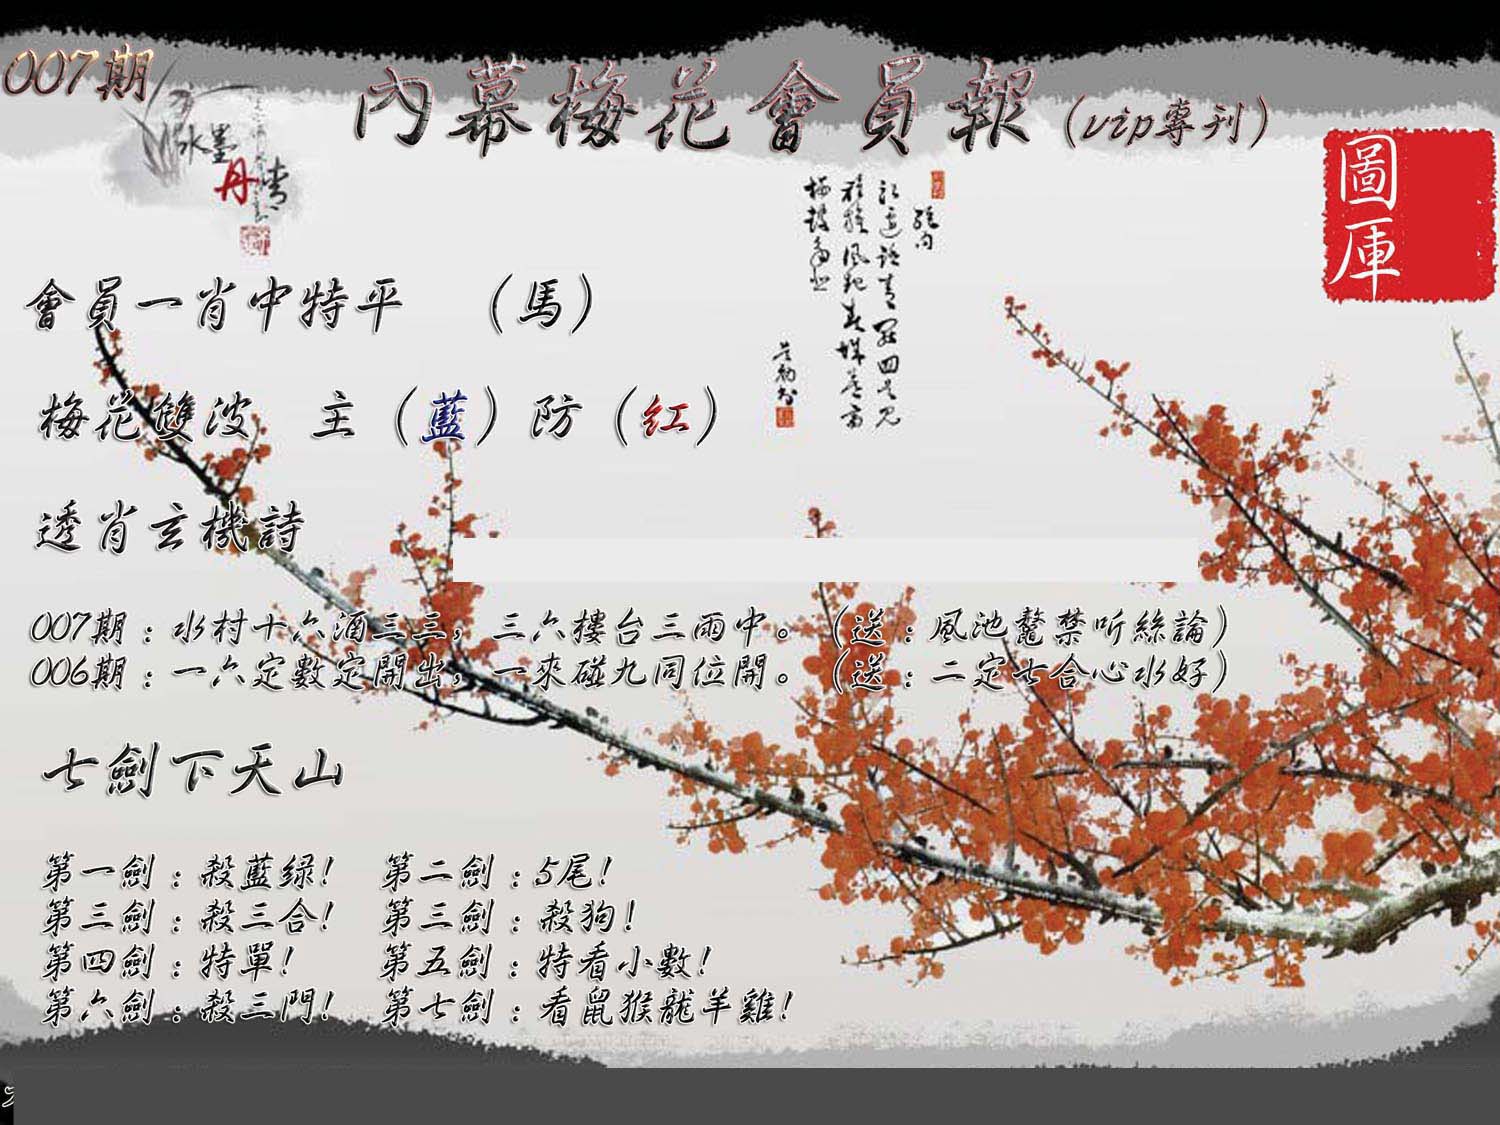 007期
內幕梅花會員報(vip專刊)
水墨
丹青
圖庫
會員一肖中特平 (馬)
梅花雙波 主(藍)防(红)
透肖玄機詩
007期：水村十六酒三三，三六樓台三雨中。(送：風池鼇禁听絲論)
006期：一六定數定開出，一來碰九同位開。(送：二定七合心水好)
七劍下天山
第一劍：殺藍绿! 第二劍：5尾!
第三劍：殺三合! 第三劍：殺狗!
第四劍：特單! 第五劍：特看小數!
第六劍：殺三門! 第七劍：看鼠猴龍羊雞!